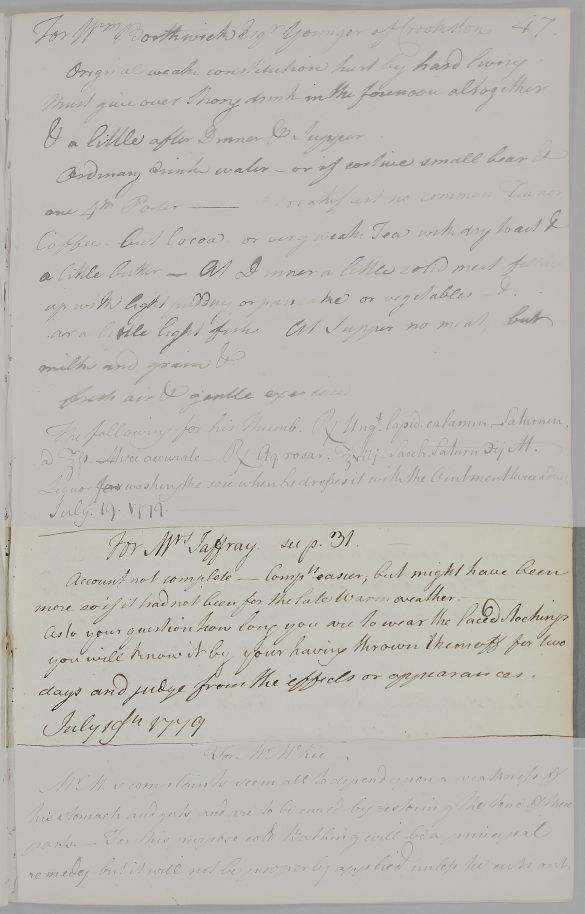 For Wm. Borthwick Esqr. Younger of Crookston 47.
Original weak constitution hurt by hard living
Must give over strong drink in the forenoon altogether
& a little after Dinner & Supper
Ordinary drink water – or if costive small bear &
one 4th Porter — breakfast no common Tea nor
Coffee. but Cocoa or very weak Tea with dry toast &
a little butter – At Dinner a little solid meat filling
up with light pudding or pancake or vegetables – &.
or a little light fish. At Supper no meat, but
milk and grain &
fresh air & gentle exercise
The following for his thumb. Rx Ungt. lapid. calamin. Saturnin.
a ʒp. Misce accurate – Rx Aq rosar. Sacch. Saturn M.
Liquor for washing the sore when he dresses it with the Ointment twice a day
July. 19. 1779.
For Mrs Jaffray. see p. 31.
Account not complete – Compts. easier, but might have been
more so if it had not been for the late Warm weather.
As to your question how long you are to wear the laced Stockings
you will know it by your having thrown them off for two
days and judge from the effects or appearances.
July 19th 1779
For Mr. McKie.
Mr. M.s complaints seem all to depend upon a weakness of
his stomach and guts, and are to be cured by restoring the tone of these
parts. – For this purpose cold Bathing will be a principal
remedy but it will not be properly applied unless he